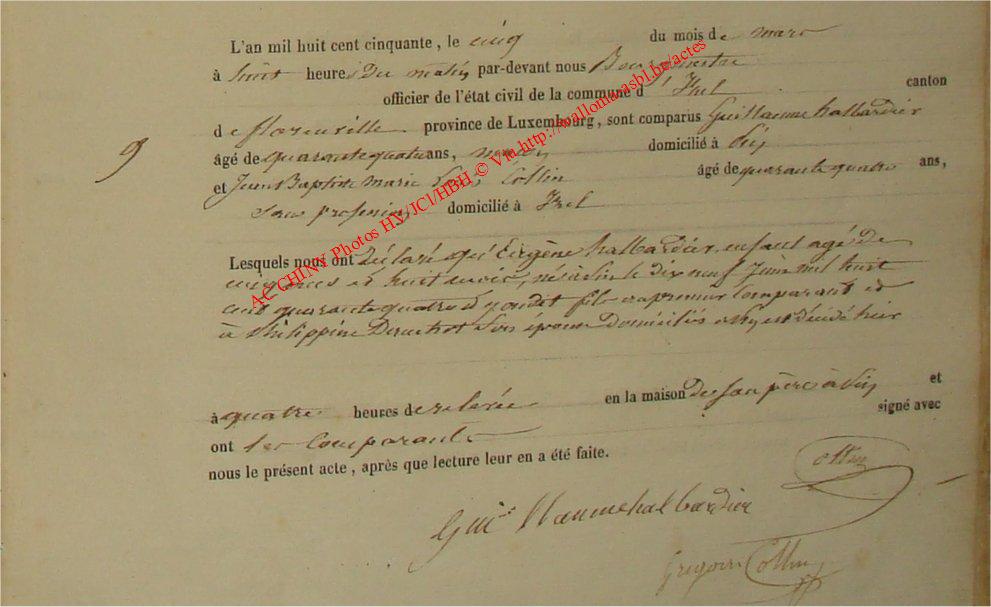 L'an mil huit cent cinquante, le cinq du mois de mars
à huit heures du matin par-devant nous Bourgmestre
officier de l'état civil de la commune d'Izel canton
de florenville province de Luxembourg, sont comparus Guillaume halbardier
9 âgé de quarante quatre ans, domicilié à
et Jean Baptiste Marie Collin âgé de quarante quatre ans,
sans profession domicilié à Izel
Lesquels nous ont déclaré que Eugène halbardier, enfant agé de
cinq ans et huit mois, né le dix neuf Juin mil huit
cent quarante quatre fils du premier Comparant et
à Philippine son épouse domiciliés est décédé hier
à quatre heures de relevée en la maison de son père à et
ont les Comparants signé avec
nous le présent acte, après que lecture leur en a été faite.
Collin
Guillaume halbardier
Gregoire Collin
AC CHINY Photos HV/JCl/HBH © Via http://wallonia-asbl.be/actes